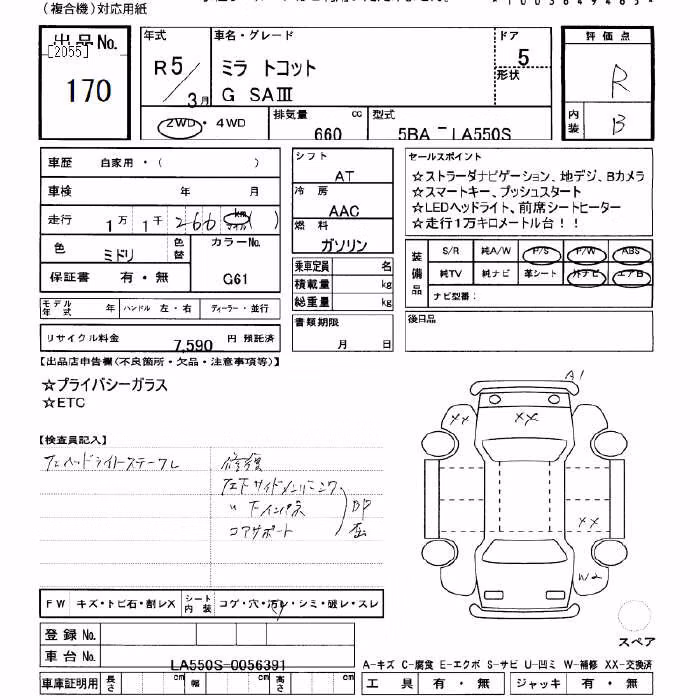 (複合機)対応用紙
出品No.
[2055]
170
年式
R5
3月
車名・グレード
ミラ トコット
G SAⅢ
ドア
5
形状
評価点
R
内装
B
2WD・4WD
排気量
cc
660
型式
5BA－LA550S
車歴
自家用・( )
車検
年 月
走行
1万 1千 266 km
マイル
( )
色
ミドリ
色替
カラーNo.
G61
保証書
有・無
モデル年式
年
ハンドル 左・右
ディーラー・並行
リサイクル料金
7,590
円 預託済
シフト
AT
冷房
AAC
燃料
ガソリン
乗車定員
名
積載量
kg
総重量
kg
書類期限
月 日
セールスポイント
☆ストラーダナビゲーション、地デジ、Bカメラ
☆スマートキー、プッシュスタート
☆LEDヘッドライト、前席シートヒーター
☆走行1万キロメートル台！！
装備品
S/R 純A/W P/S P/W ABS
純TV 純ナビ 革シート 外ナビ エアB
ナビ型番：
後日品
【出品店申告欄(不良箇所・欠品・注意事項等)】
☆プライバシーガラス
☆ETC
【検査員記入】
修復
コアサポート
A1
XX
XX
XX
W2
FW
キズ・トビ石・割レX
シート内装
コゲ・穴・汚レ・シミ・破レ・スレ
登録No.
車台No.
LA550S-0056391
車庫証明用
長さ
cm
幅
cm
高さ
cm
スペア
A-キズ C-腐食 E-エクボ S-サビ U-凹ミ W-補修 XX-交換済
工具
有・無
ジャッキ
有・無